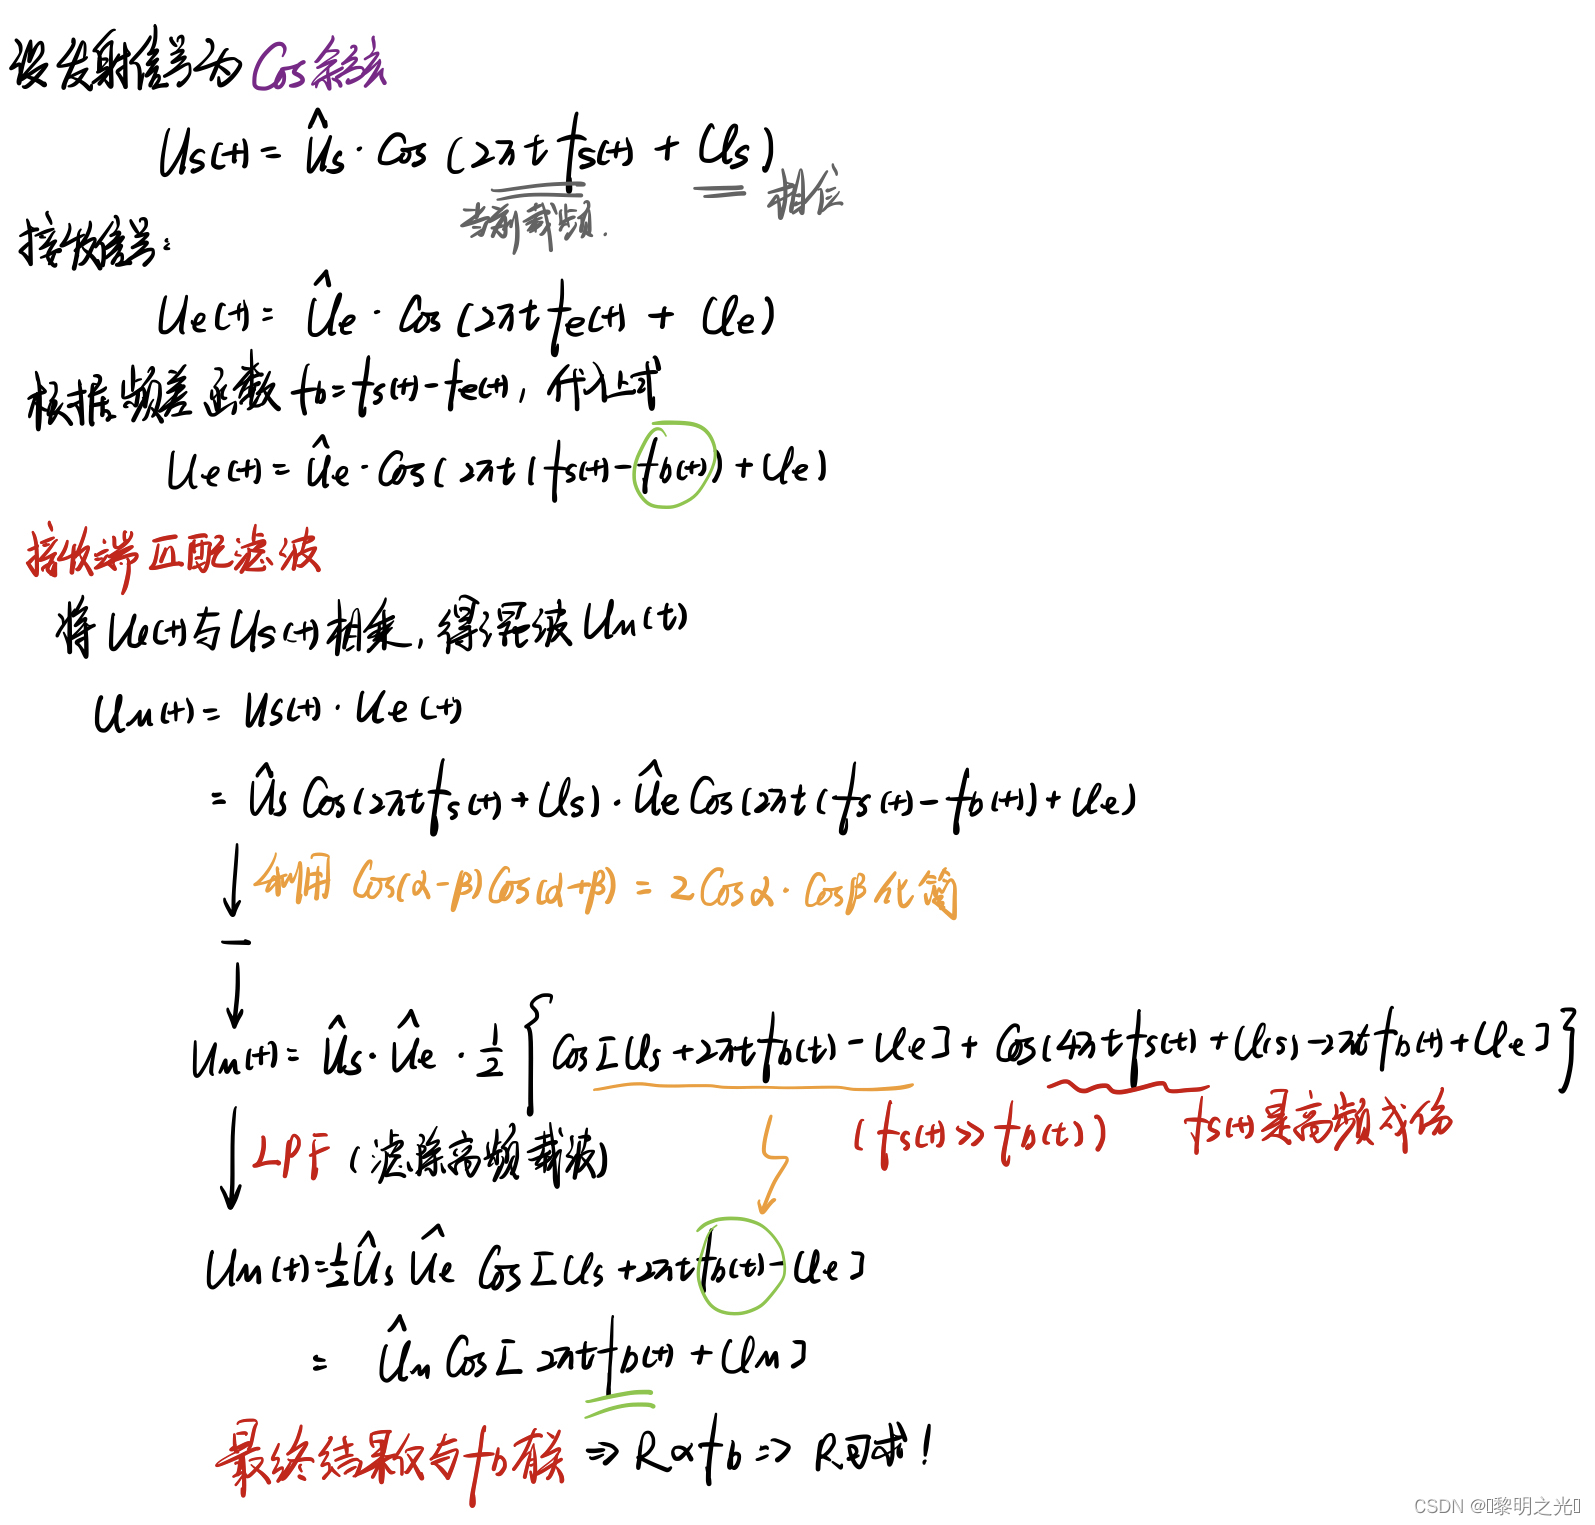 设发射信号为 Cos 余弦
Us(t) = Ûs · Cos (2πt fs(t) + φs)
当前载频. 相位
接收信号:
Ue(t) = Ûe · Cos (2πt fe(t) + φe)
根据频差函数 fb = fs(t) - fe(t), 代入上式
Ue(t) = Ûe · Cos ( 2πt (fs(t) - fb(t)) + φe)
接收端匹配滤波
将 Ue(t) 与 Us(t) 相乘, 得混波 Um(t)
Um(t) = Us(t) · Ue(t)
= Ûs Cos(2πt fs(t) + φs) · Ûe Cos(2πt (fs(t) - fb(t)) + φe)
↓ 利用 Cos(α-β) Cos(α+β) = 2 Cosα · Cosβ 化简
Um(t) = Ûs · Ûe · 1/2 { Cos[φs + 2πt fb(t) - φe] + Cos(4πt fs(t) + φ(s) - 2πt fb(t) + φe] }
(fs(t) >> fb(t)) fs(t) 是高频成份
↓ LPF (滤除高频载波)
Um(t) = 1/2 Ûs Ûe Cos[φs + 2πt fb(t) - φe]
= Ûm Cos[ 2πt fb(t) + φm]
最终结果仅与 fb 有关 => R ∝ fb => R可求!
CSDN @黎明之光